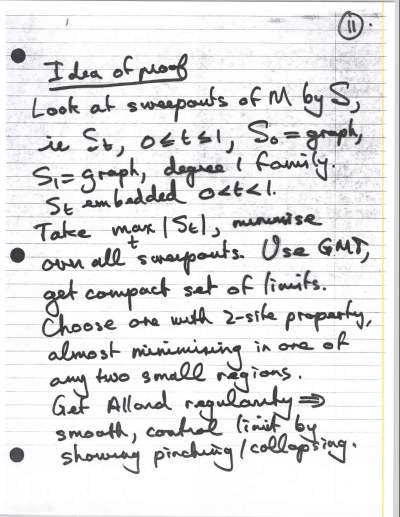 11.
Idea of proof
Look at sweepouts of M by S,
ie St, 0≤t≤1, S0 = graph,
S1 = graph, degree 1 family.
St embedded 0<t<1.
Take max |St|, minimise
t
over all sweepouts. Use GMT,
get compact set of limits.
Choose one with 2-site property,
almost minimising in one of
any two small regions.
Get Allard regularity ⇒
smooth, control limit by
showing pinching/collapsing.